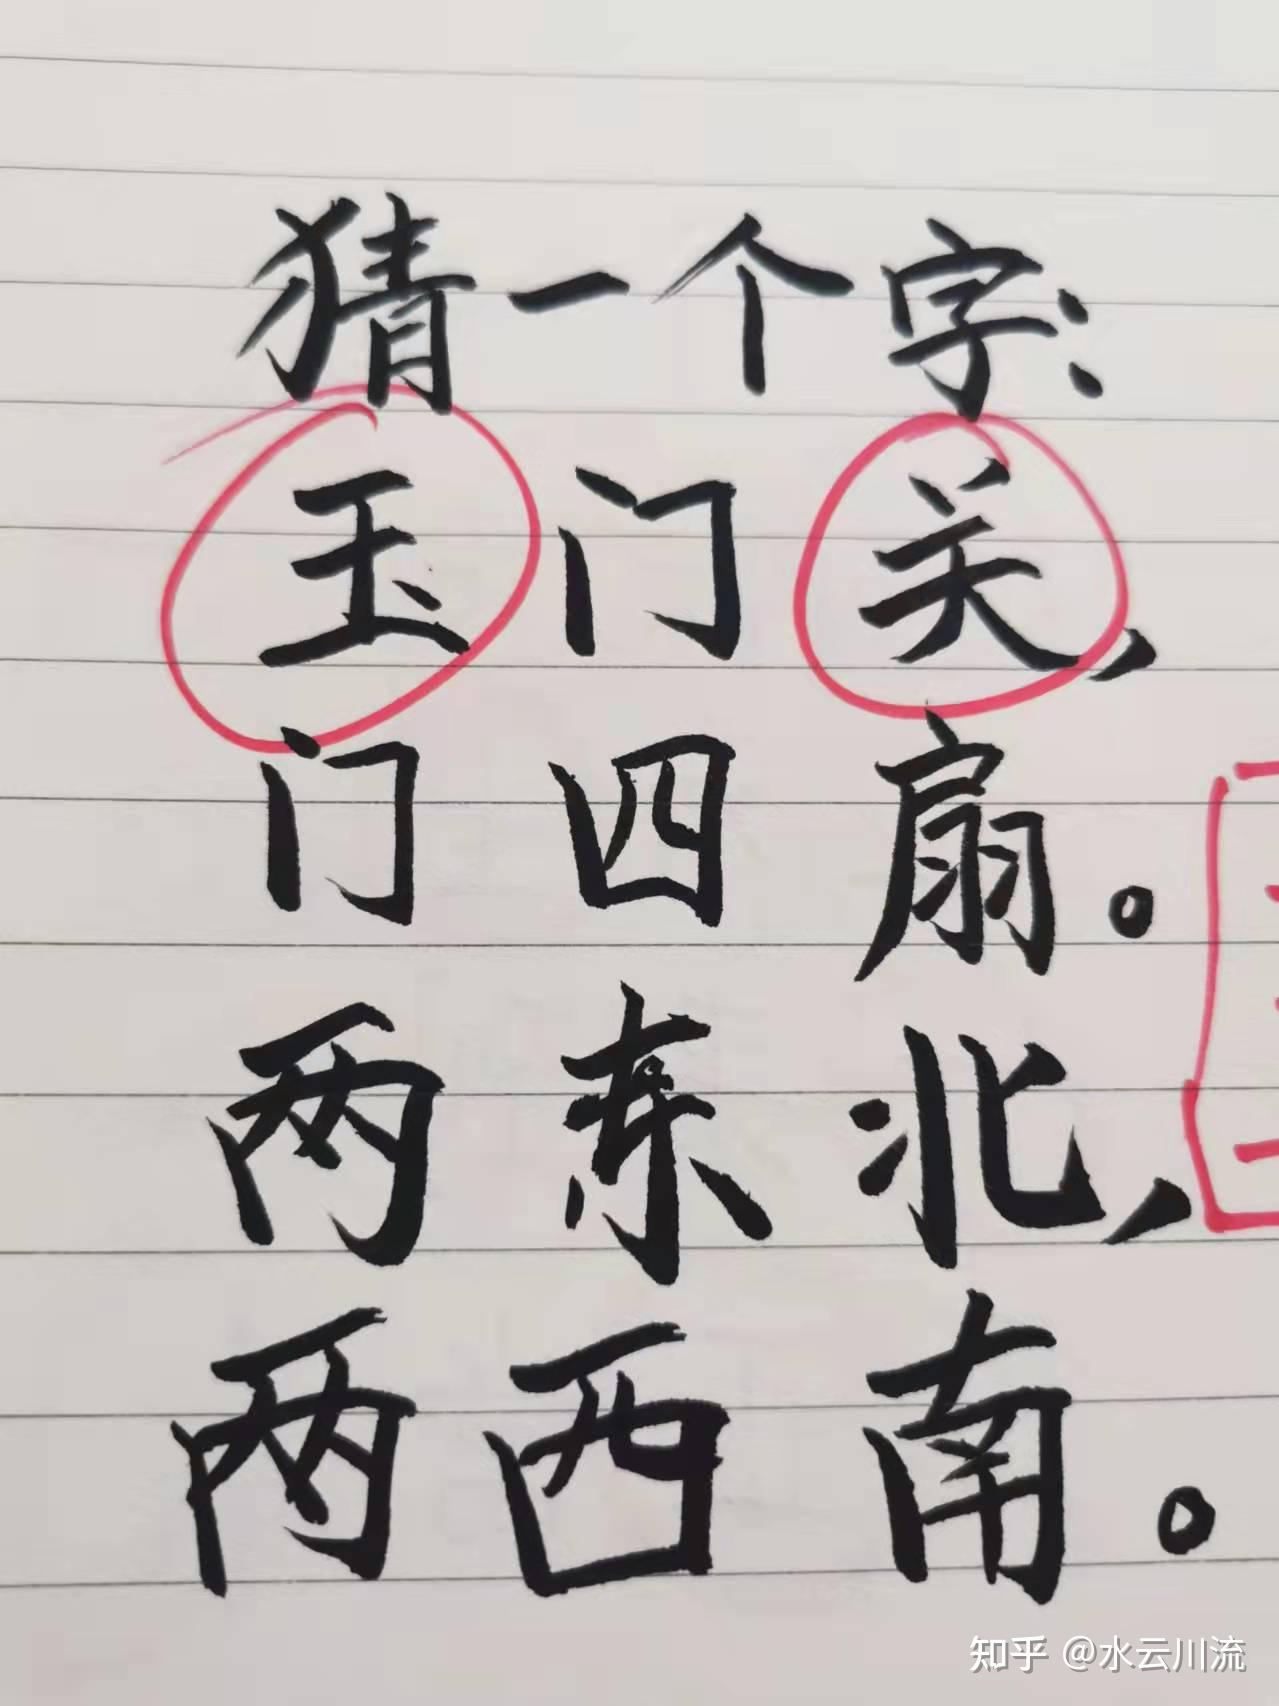 猜一个字:
玉门关,
门四扇。
两东北,
两西南。
知乎 @水云川流